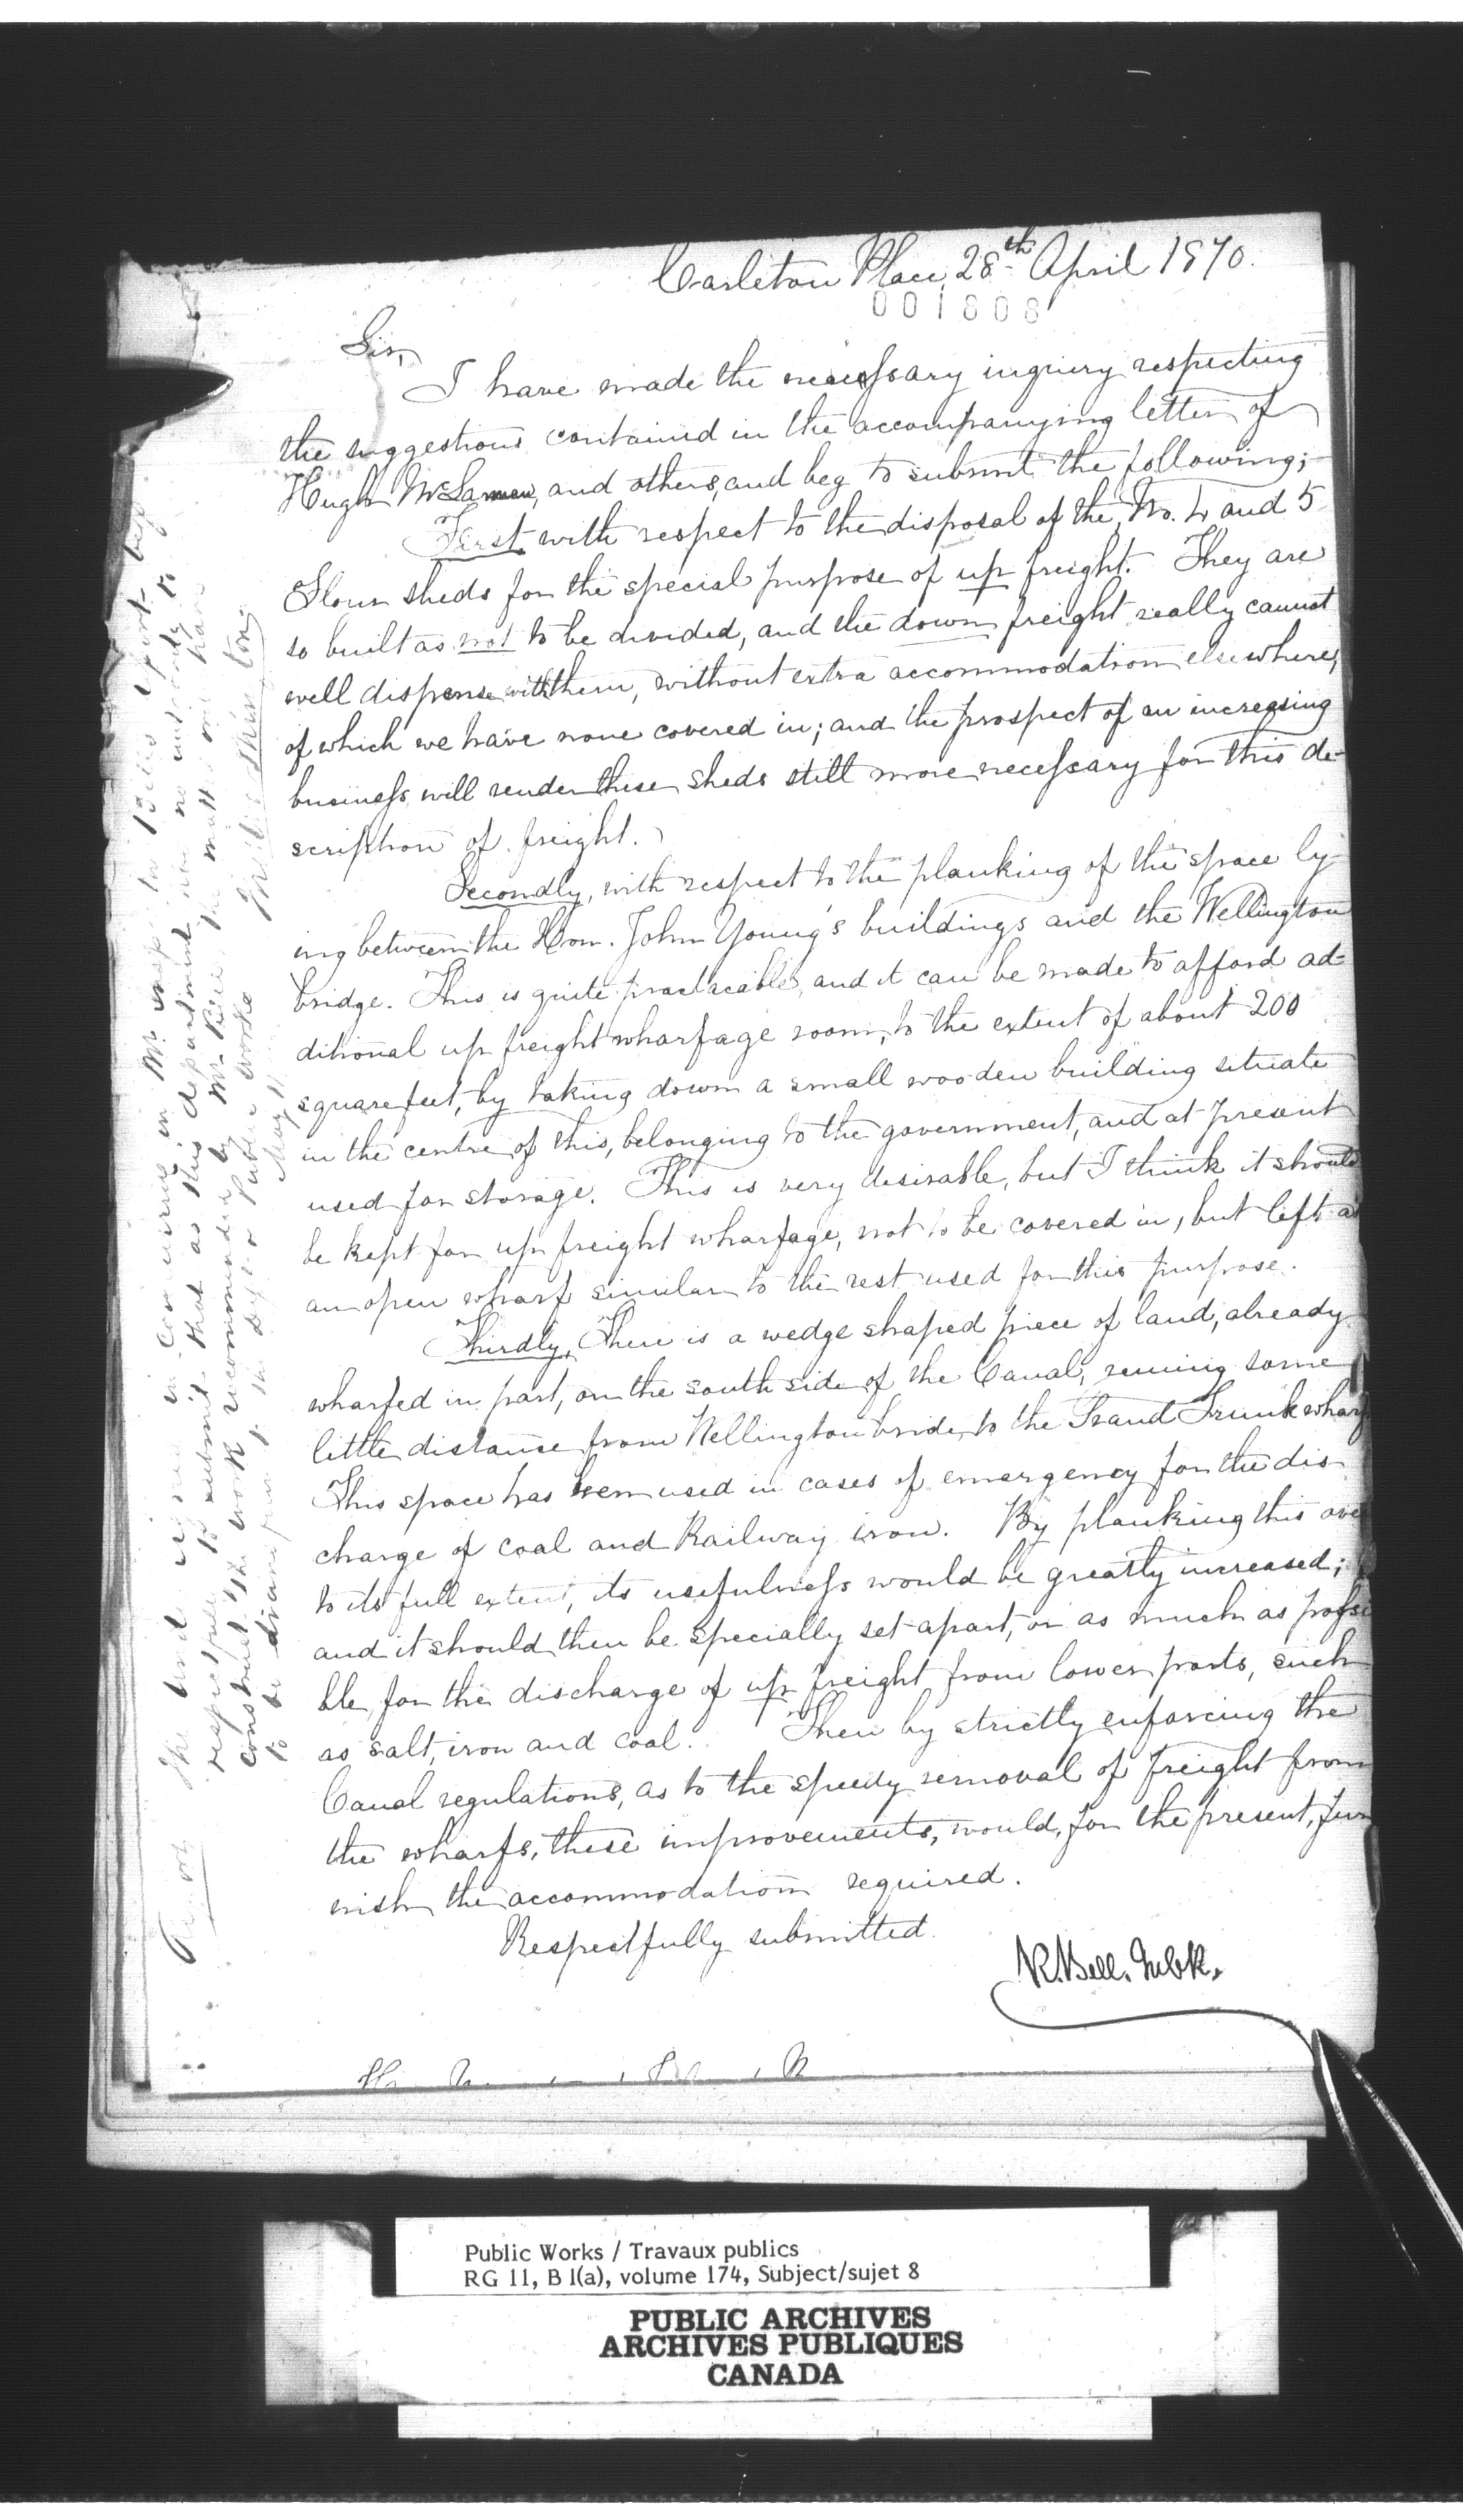 Carleton Place, 28th April 1870.
001808
Sir,
I have made the necessary inquiry respecting
the suggestions contained in the accompanying letter of
Hugh McLannan, and others, and beg to submit the following;
First with respect to the disposal of the No. 4 and 5
Flour sheds for the special purpose of up freight. They are
so built as not to be divided, and the down freight really cannot
well dispense with them, without extra accommodation elsewhere,
of which we have none covered in; and the prospect of an increasing
business will render these sheds still more necessary for this de-
scription of freight.
Secondly, with respect to the planking of the space ly-
ing between the Hon. John Young's buildings and the Wellington
bridge. This is quite practacable, and it can be made to afford ad-
ditional up freight wharfage room, to the extent of about 200
square feet, by taking down a small wooden building situate
in the centre of this, belonging to the government, and at present
used for storage. This is very desirable, but I think it should
be kept for up freight wharfage, not to be covered in, but left as
an open wharf similar to the rest used for this purpose.
Thirdly, There is a wedge shaped piece of land, already
wharfed in part, on the south side of the Canal, runing some
little distance from Wellington bride, to the Grand Trunk wharf
This space has been used in cases of emergency for the dis
charge of coal and Railway iron. By planking this over
to its full extent, its usefulness would be greatly increased;
and it should then be specially set apart, or as much as possi
ble, for the discharge of up freight from lower ports, such
as salt, iron and coal. Then by strictly enforcing the
Canal regulations, as to the speedy removal of freight from
the wharfs, these improvements, would, for the present, fur
nish the accommodation required.
Respectfully submitted.
R. Bell.
The undersigned in concurring in Mr. Bell's report begs
respectfully to submit that as this department has no authority to
construct the work recommended by Mr. Bell, the matter will have
to be drawn to the Public Works
May
Public Works / Travaux publics
RG 11, B 1(a), volume 174, Subject/sujet 8
PUBLIC ARCHIVES
ARCHIVES PUBLIQUES
CANADA